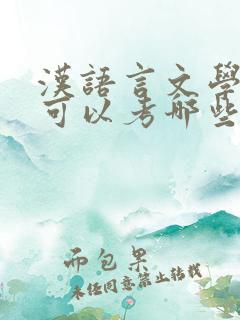 漢語言文學
可以考哪些
而包果
未经同意禁止转载